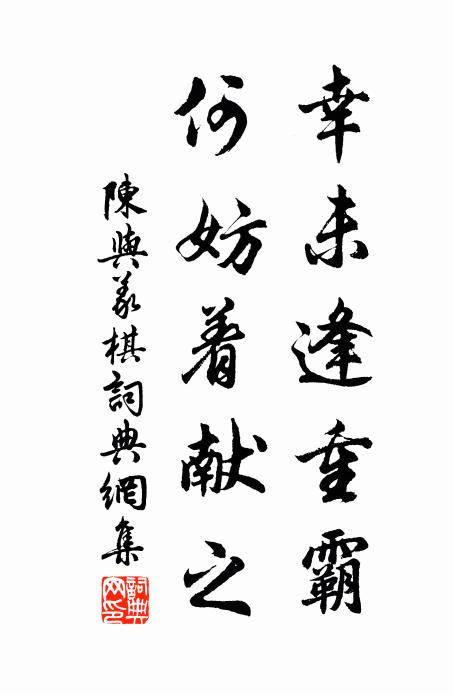 幸未逢重霸
何妨着献之
陳與義棋詞典網集
詞典网印